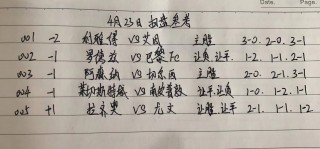 4月23日 扫盘参考
001 -2 利雅得 VS 艾因 主胜 3-0. 2-0. 3-1
002 -1 罗德兹 VS 巴黎Fc 让负.让平. 1-2. 1-1. 2-1
003 -1 阿森纳 VS 切尔西 主胜 2-0. 2-1. 3-1
004 -1 莱切斯特城 VS 南安普敦 让平.让负 1-0. 1-1. 1-2
005 +1 拉齐奥 VS 尤文 让胜.让平 2-1. 1-1. 1-2
Date. Page.